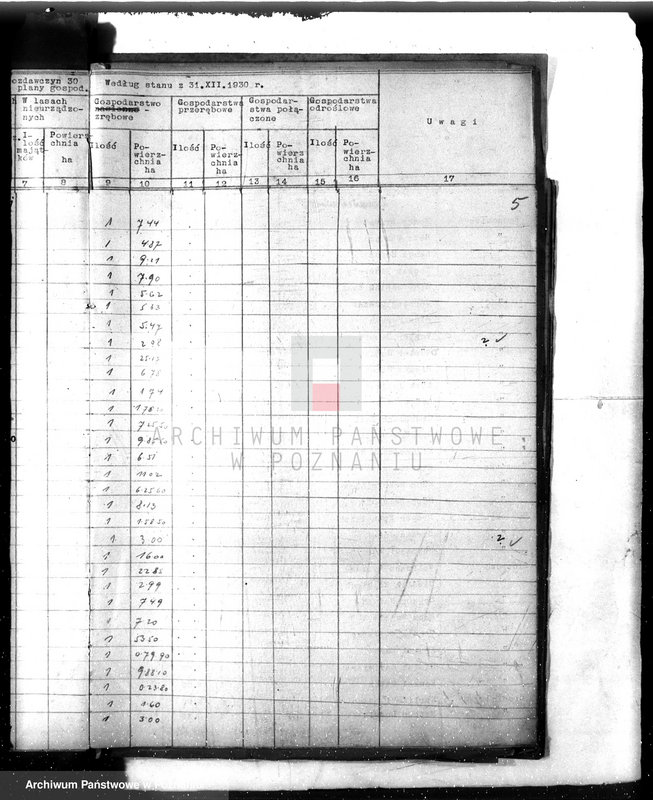 ozdawczyń 30
plany gospod.
Według stanu z 31.XII.1930 r.
W lasach
nieurządzo-
nych
Gospodarstwo
zrębowe
Gospodarstwa
przerębowe
Gospodar-
stwa połą-
czone
Gospodarstwa
odroślowe
U w a g i
I-
lość
mająt-
ków
Powierz
chnia
ha
Ilość
Po-
wierz-
chnia
ha
Ilość
Po-
wierz-
chnia
ha
Ilość
Po-
wierz
chnia
ha
Ilość
Po-
wierz-
chnia
ha
7 8 9 10 11 12 13 14 15 16 17
5
1 7.44
1 4.87
1
1 7.90
1 5.62
1
1 5.47
1 2.98 ?
1 25.13
1 6.78
1 1.74
1
1
1
1 6.51
1 11.02
1 6.25.60
1 8.13
1 1.58.50
1 3.00 ?
1 16.00
1 22.82
1 2.99
1 7.49
1 7.20
1 53.50
1 0.79.90
1 9.88.10
1 0.23.80
1 1.60
1 3.00
ARCHIWUM PAŃSTWOWE
W POZNANIU
Archiwum Państwowe w